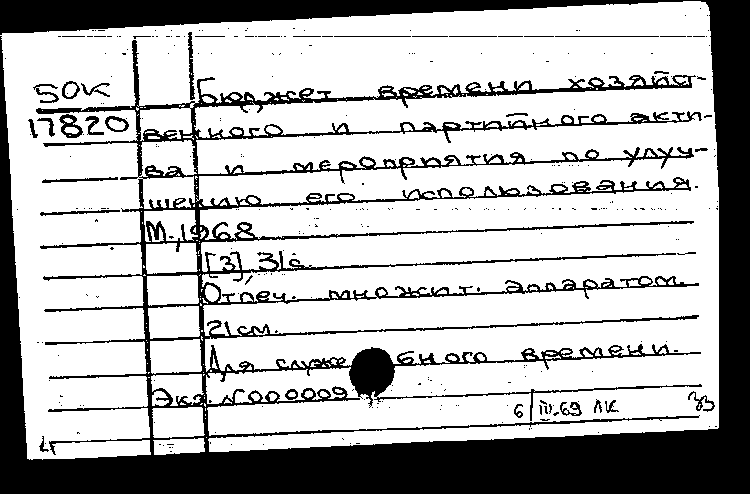 50К Бюджет времени хозяйст-
17820 венного и партийного акти-
ва и мероприятия по улуч-
шению его использования.
М., 1968
[3], 31с.
Отпеч. множит. аппаратом.
21см.
Для служебного времени.
Экз. №000009
6/IV-69 ЛК